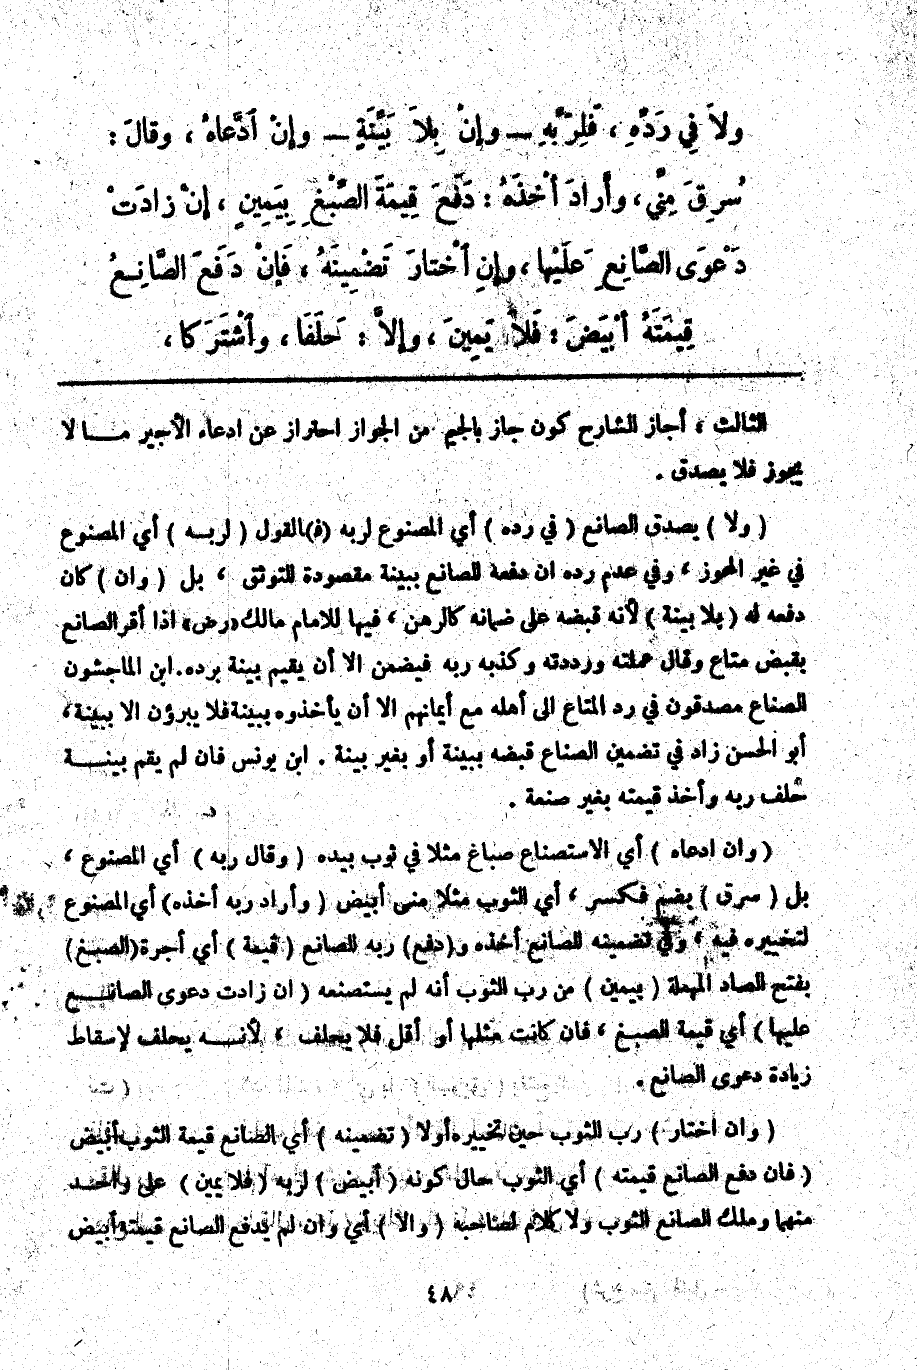 ولاَ فِي رَدِّهِ ، فَلِرَبِّهِ ــ وإنْ بِلاَ بَيِّنَةٍ ــ وإنْ ٱدَّعاهُ ، وقالَ :
سُرِقَ مِنِّي ، وأرادَ أخْذَهُ : دَفَعَ قِيمَةَ الصَّبْغِ بِيَمِينٍ ، إنْ زادَتْ
دَعْوَى الصَّانِعِ عَلَيْها ، وإنِ ٱخْتارَ تَضْمِينَهُ ، فَإنْ دَفَعَ الصَّانِعُ
قِيمَتَهُ أبْيَضَ : فَلاَ يَمِينَ ، وإلاَّ : حَلَفَا ، وٱشْتَرَكا ،
الثالث ، أجاز الشارح كون جاز بالجيم من الجواز احتراز عن ادعاء الأجير مــا لا
يجوز فلا يصدق .
( ولا ) يصدق الصانع ( في رده ) أي المصنوع لربه (ف)القول ( لربــه ) أي المصنوع
في غير المحوز ، وفي عدم رده ان دفعه للصانع ببينة مقصودة للتوثق ، بل ( وان ) كان
دفعه له ( بلا بينة ) لأنه قبضه على ضمانه كالرهن ، فيها للامام مالك «رض» اذا أقر الصانع
بقبض متاع وقال عملته ورددته وكذبه ربه فيضمن الا أن يقيم بينة برده . ابن الماجشون
الصناع مصدقون في رد المتاع الى أهله مع أيمانهم الا أن يأخذوه ببينة فلا يبرؤن الا ببينة ،
أبو الحسن زاد في تضمين الصناع قبضه ببينة أو بغير بينة . ابن يونس فان لم يقم بينــــة
حلف ربه وأخذ قيمته بغير صنعة .
( وان ادعاه ) أي الاستصناع صباغ مثلا في ثوب بيده ( وقال ربه ) أي المصنوع ،
بل ( سرق ) بضم فكسر ، أي الثوب مثلا مني أبيض ( وأراد ربه أخذه) أي المصنوع
لتخييره فيه ، وفي تضمينه للصانع أخذه و(دفع) ربه للصانع ( قيمة ) أي أجرة(الصبغ)
بفتح الصاد المهملة ( بيمين ) من رب الثوب أنه لم يستصنعه ( ان زادت دعوى الصانــــع
عليها ) أي قيمة الصبغ ، فان كانت مثلها أو أقل فلا يحلف ، لأنــــه يحلف لإسقاط
زيادة دعوى الصانع .
( وان اختار ) رب الثوب حين تخييره أولا ( تضمينه ) أي الصانع قيمة الثوب أبيض
( فان دفع الصانع قيمته ) أي الثوب حال كونه ( أبيض ) لربه ( فلا يمين ) على واحــد
منهما وملك الصانع الثوب ولا كلام لصاحبه ( والا ) أي وان لم يدفع الصانع قيمته أبيض
٤٨